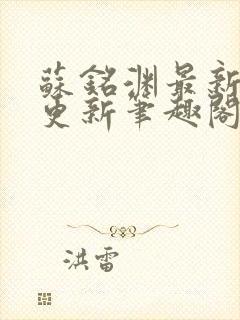 蘇銘淵最新
更新筆趣閣
洪雷